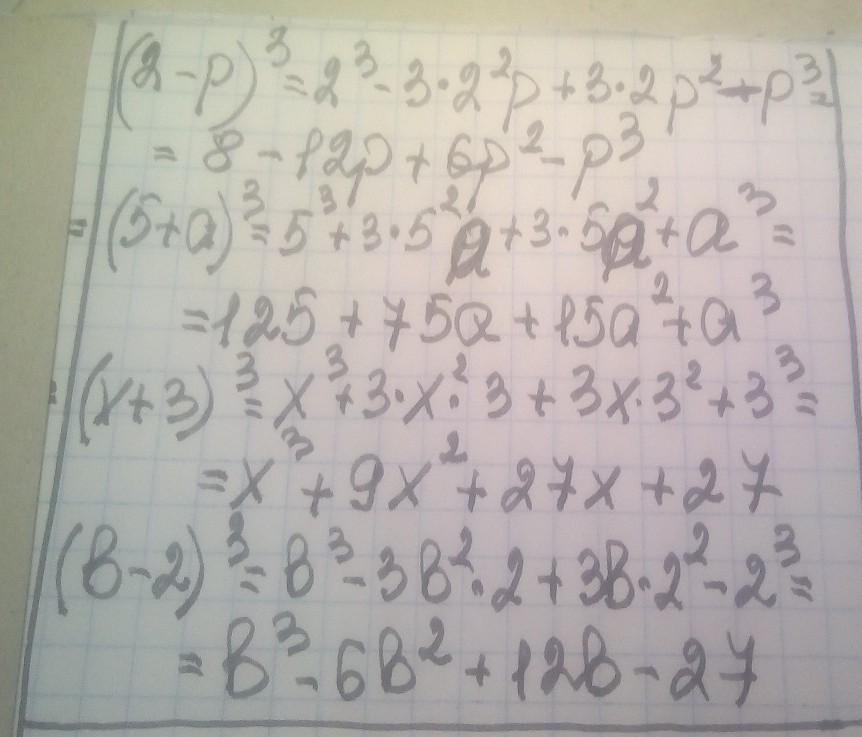 (2-p)³=2³-3·2²p+3·2p²+p³=
=8-12p+6p²-p³
=(5+a)³=5³+3·5²a+3·5a²+a³=
=125+75a+15a²+a³
=(x+3)³=x³+3·x²·3+3x·3²+3³=
=x³+9x²+27x+27
(b-2)³=b³-3b²·2+3b·2²-2³=
=b³-6b²+12b-27